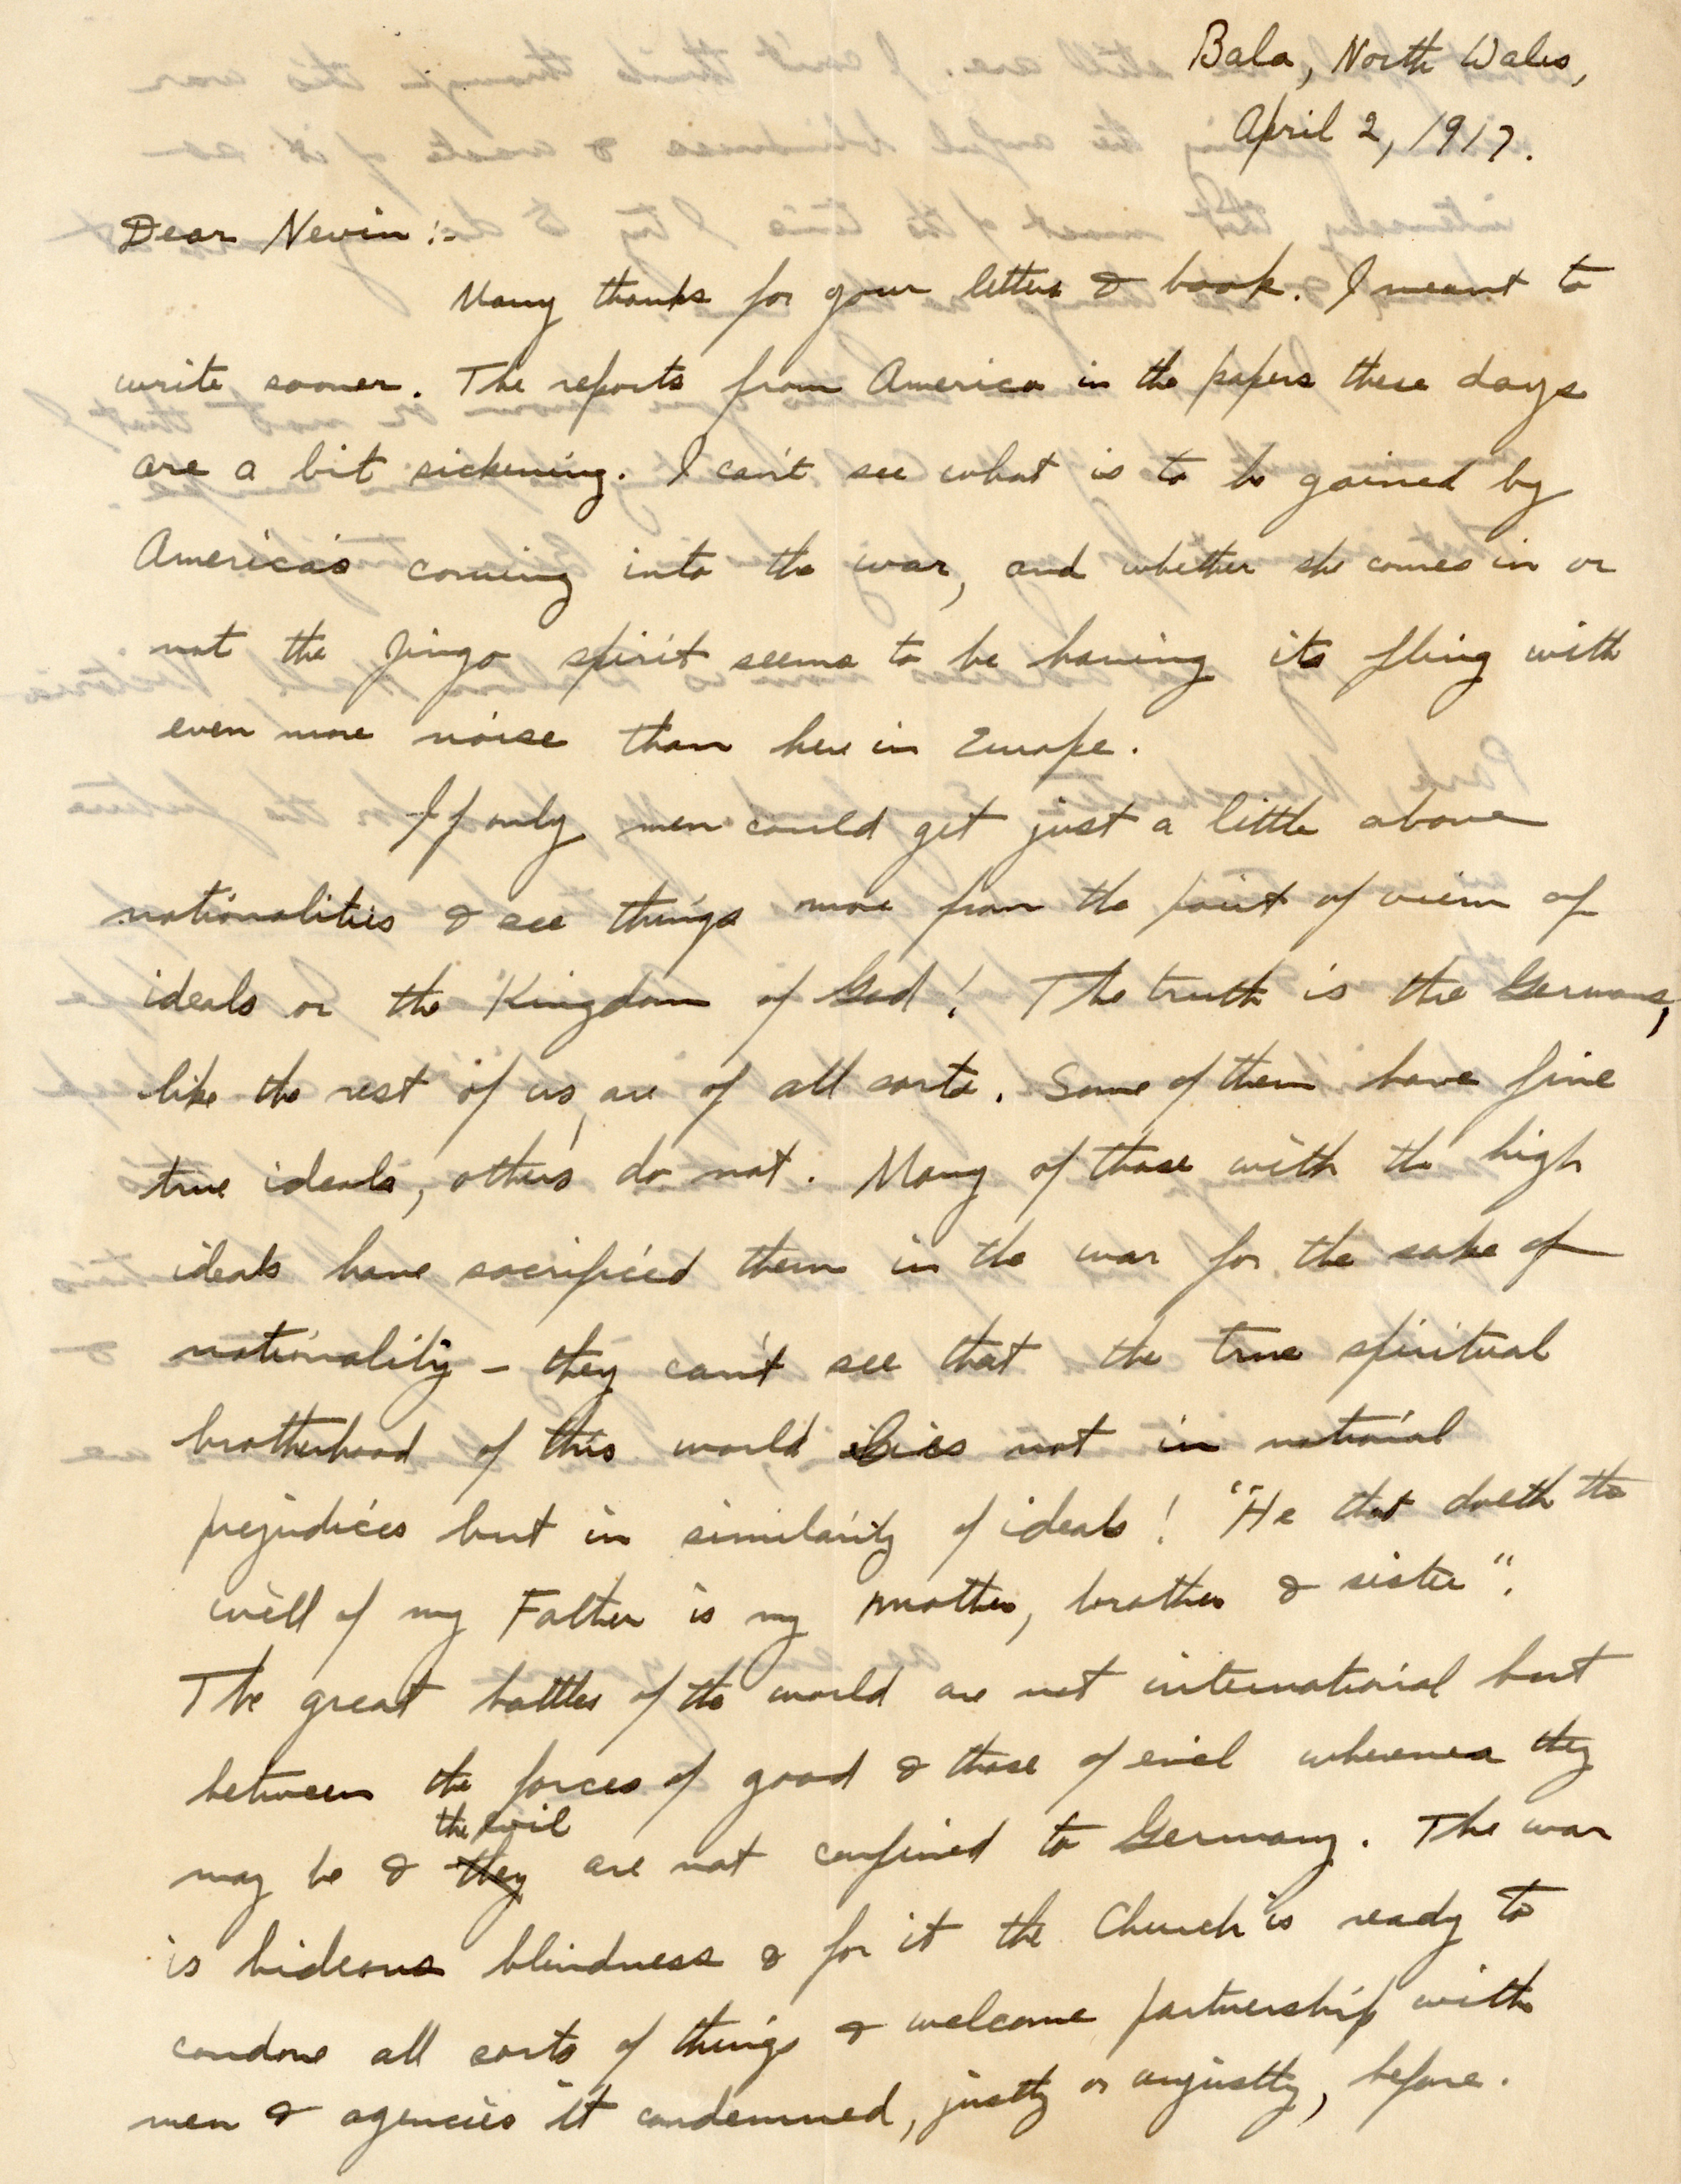 Bala, North Wales,
April 2, 1917.
Dear Nevin:-
Many thanks for your letter & book. I meant to
write sooner. The reports from America in the papers these days
are a bit sickening. I can't see what is to be gained by
America's coming into the war, and whether she comes in or
not the Jingo spirit seems to be having its fling with
even more noise than here in Europe.
If only men could get just a little above
nationalities & see things more from the point of view of
ideals or the Kingdom of God! The truth is the Germans,
like the rest of us, are of all sorts. Some of them have fine
true ideals, others do not. Many of those with the high
ideals have sacrificed them in the war for the sake of
nationality - they can't see that the true spiritual
brotherhood of this world lies not in national
prejudices but in similarity of ideals! "He that doeth the
will of my Father is my mother, brother & sister".
The great battles of the world are not international but
between the forces of good & those of evil wherever they
the evil
may be & they are not confined to Germany. The war
is hideous blindness & for it the Church is ready to
condone all sorts of things & welcome partnership with
men & agencies it condemned, justly or unjustly, before.